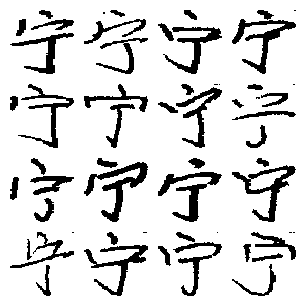 宁宁宁宁
宁宁宁宁
宁宁宁宁
宁宁宁宁